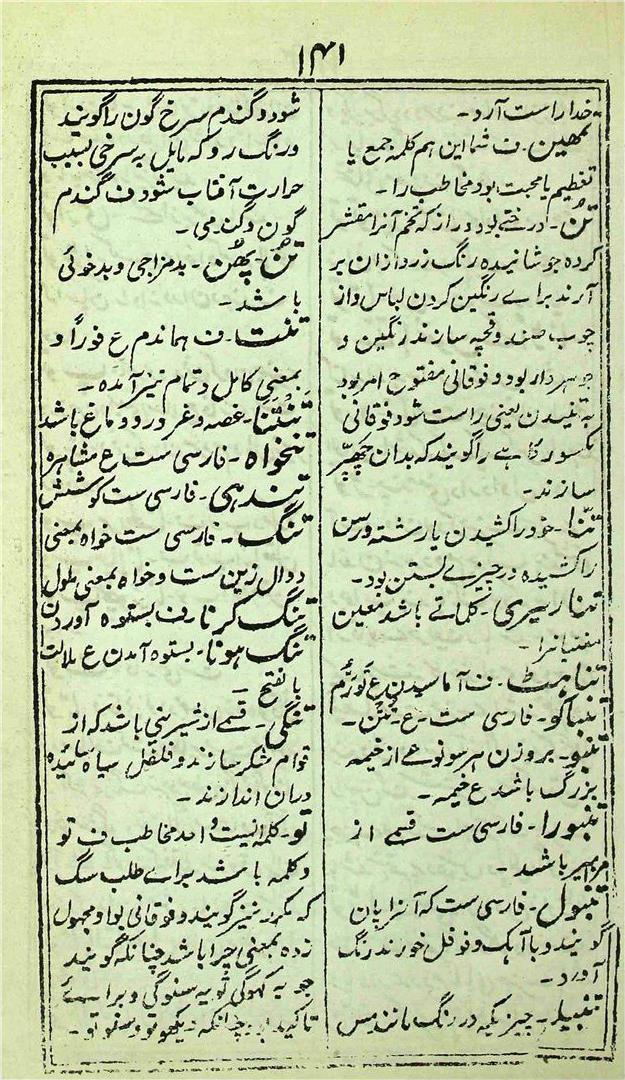 ۱۴۱
خدا راست آرد۔
تمھین۔ ف شما این ہم کلمہ جمع یا
تعظیم یا محبت بود مخاطب را۔
تن۔ درختے بود دراز کہ تخم آنرا مقشر
کردہ جوشانیدہ رنگ زرد ازان بر
آرند براے رنگین کردن لباس و از
چوب صندوقچہ سازند رنگین و
جوہردار بود و فوقانی مفتوح امر بود
بہ تنیدن یعنی راست شود فوقانی
مکسور کاہے را گویند کہ بدان چھپّر
سازند۔
تننا۔ خود را کشیدن یا رشتہ و رسن
را کشیدہ در چیزے بستن بود۔
تنا ریری۔ کلماتے باشد معین
مغنیانرا۔
تناہٹ۔ ف آماسیدن ع تَوَرُّم
تنباکو۔ فارسی ست۔ ع۔ تتن۔
تنبو۔ بروزن ہر سو نوعے از خیمہ
بزرگ باشد ع خیمہ۔
تنبورا۔ فارسی ست قسمے از
مزامیر باشد۔
تنبول۔ فارسی ست کہ آنرا پان
گویند و با آہک و فوفل خورند رنگ
آورد۔
تنبیلہ۔ چیزیکہ در رنگ مانند مس
شود و گندم سرخ گون را گویند
و رنگ رو کہ مایل بہ سرخی بسبب
حرارت آفتاب شود ف گندم
گون و گندمی۔
تن پھن۔ بد مزاجی و بد خوئی
باشد۔
تنت۔ ف ہماندم ع فوراً و
بمعنی کامل و تمام نیز آمدہ۔
تنتنا۔ غصہ و غرور و دماغ باشد
تنخواہ۔ فارسی ست ع مشاہرہ
تندہی۔ فارسی ست کوشش
تنگ۔ فارسی ست خواہ بمعنی
دوال زین ست و خواہ بمعنی ملول
تنگ کرنا۔ ف بستوہ آوردن
تنگ ہونا۔ بستوہ آمدن ع ملالت
بالفتح۔
تنگی۔ قسمے از شیرینی باشد کہ از
قوام شکر سازند و فلفل سیاہ سائیدہ
دران اندازند۔
تو۔ کلمہ ایست واحد مخاطب ف تو
و کلمہ باشد براے طلب سگ
کہ مکرر نیز گویند و فوقانی بواو مجہول
زدہ بمعنی چرا باشد چنانکہ گویند
جو یہ کہوگی تو یہ سنوگی و براے
تاکید بود چنانکہ دیکھو تو و سنو تو۔